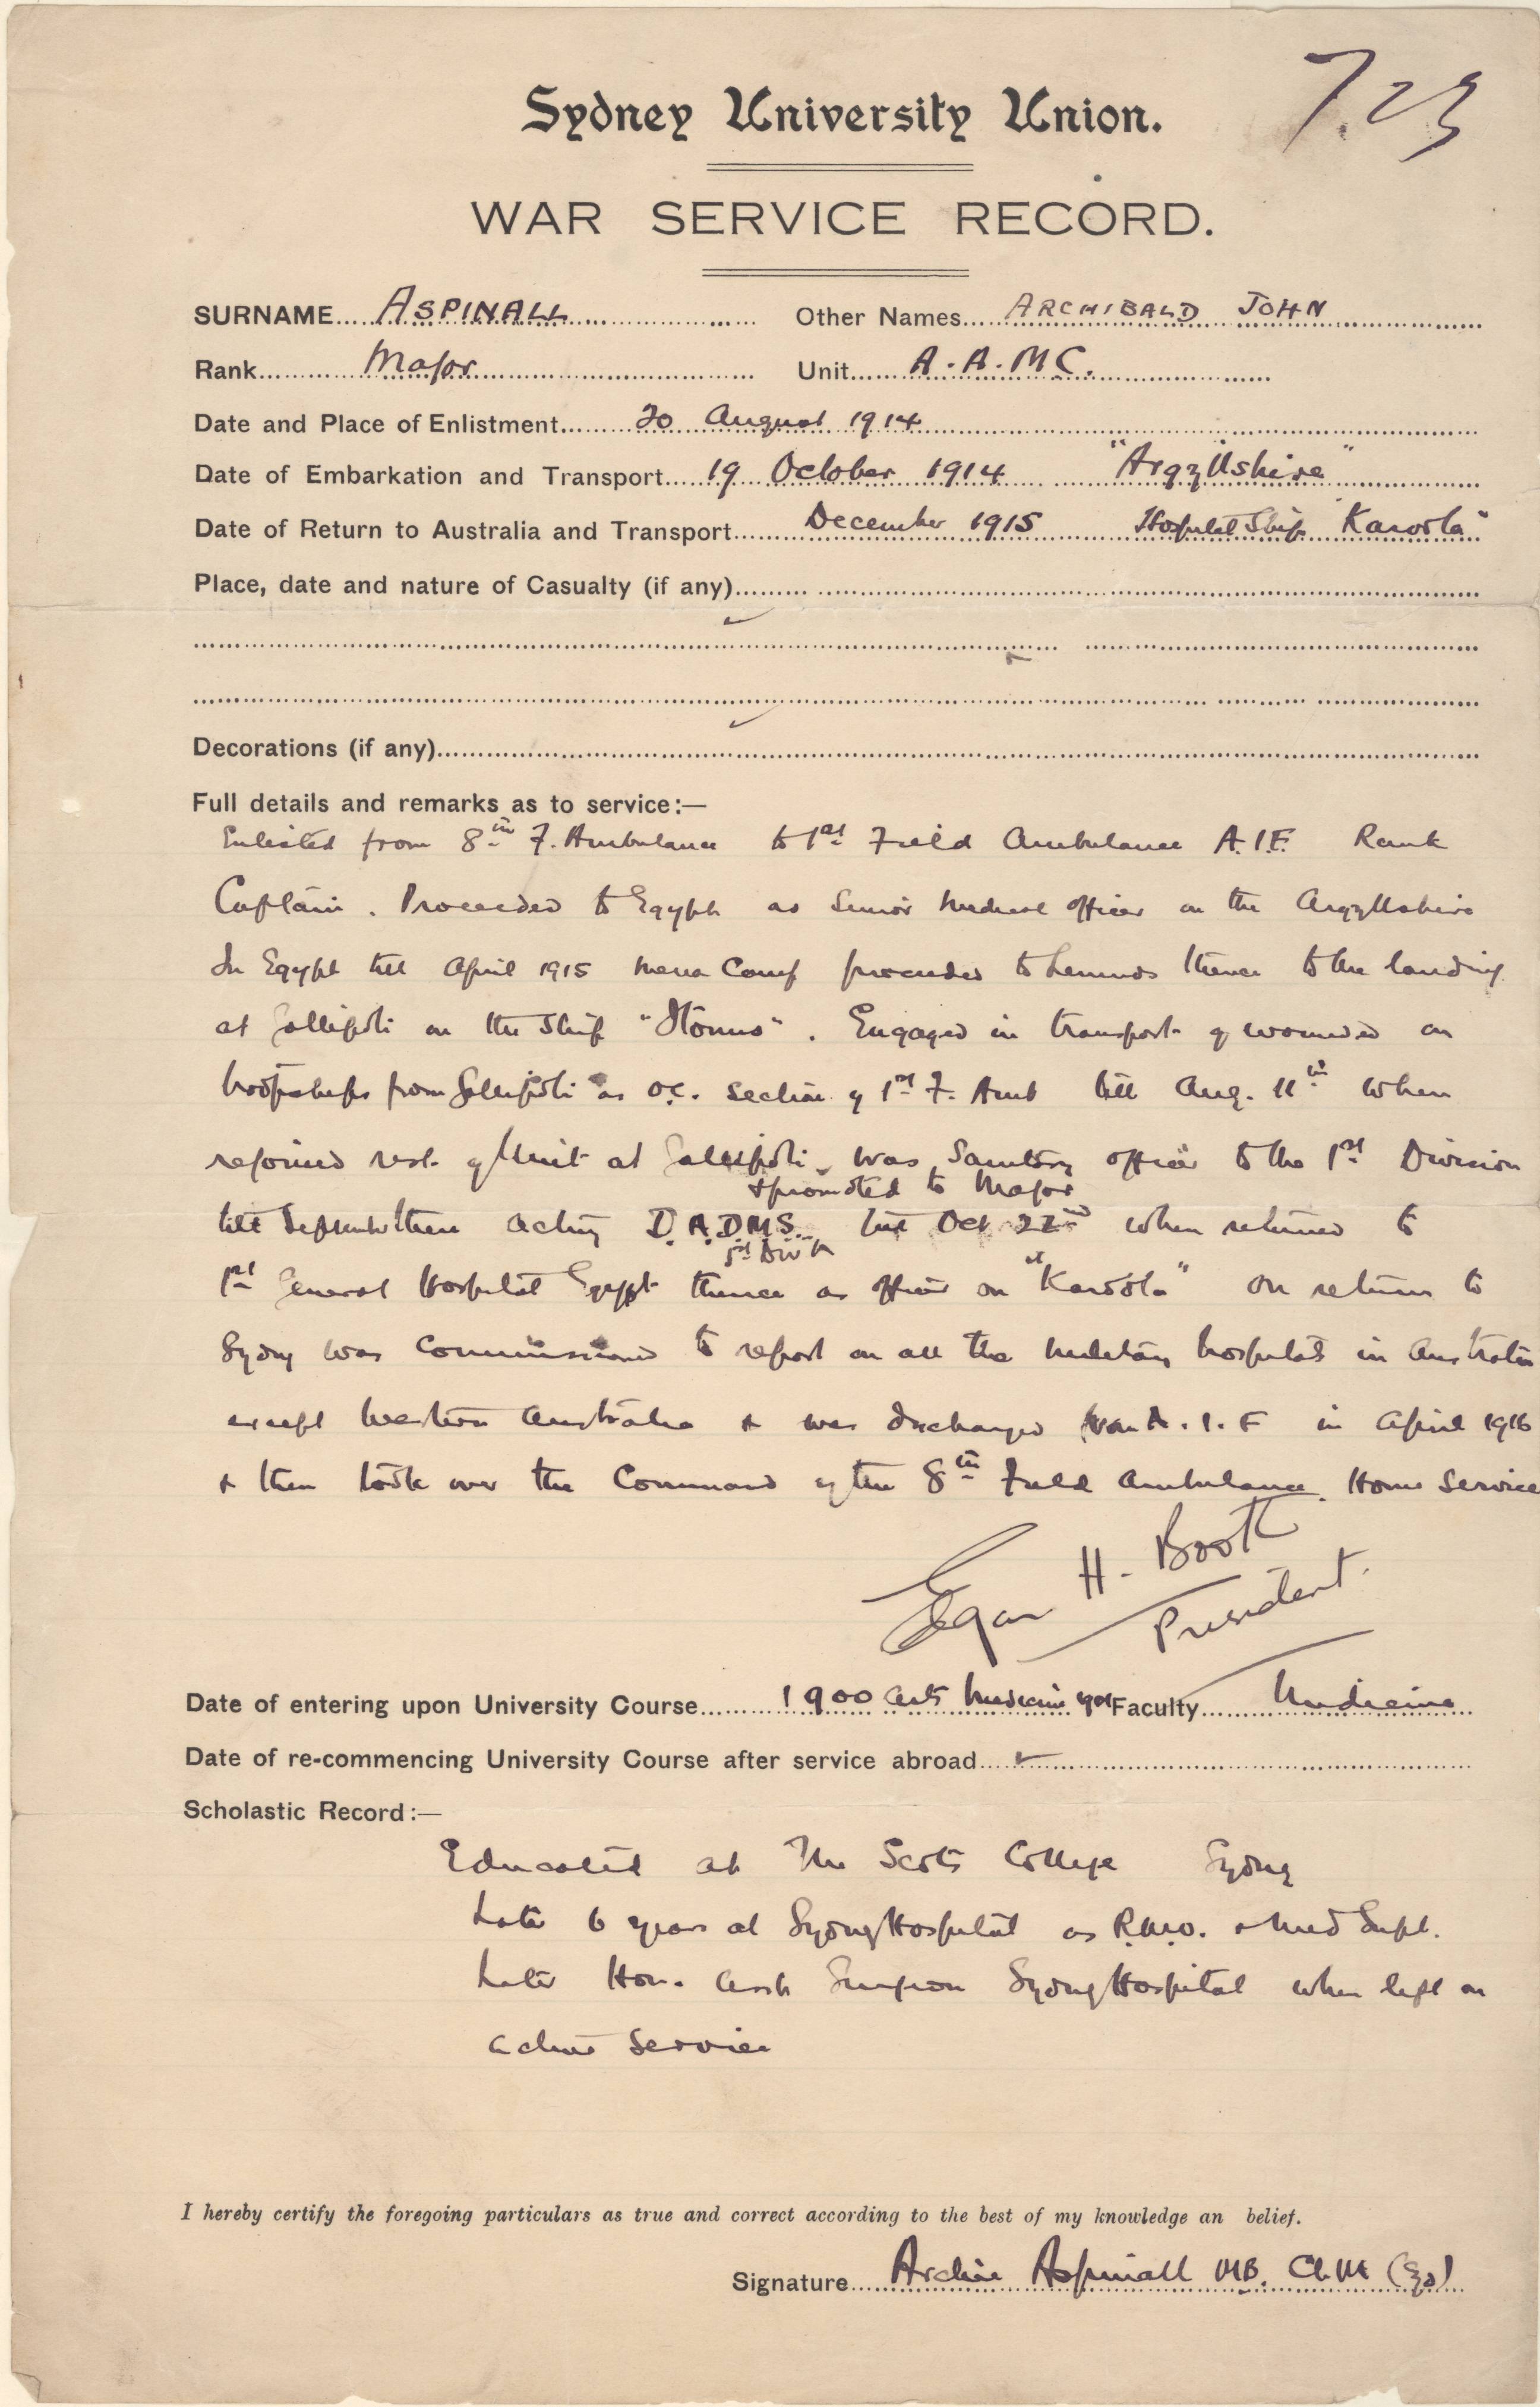 7.23
Sydney University Union.
WAR SERVICE RECORD.
SURNAME ASPINALL Other Names ARCHIBALD JOHN
Rank Major Unit A.A.M.C.
Date and Place of Enlistment 20 August 1914
Date of Embarkation and Transport 19 October 1914 "Argyllshire"
Date of Return to Australia and Transport December 1915 Hospital Ship "Karoola"
Place, date and nature of Casualty (if any)
Decorations (if any)
Full details and remarks as to service:—
Enlisted from 8th F. Ambulance to 1st Field Ambulance A.I.F. Rank
Captain. Proceeded to Egypt as Senior Medical officer on the Argyllshire
In Egypt till April 1915 Mena Camp proceeded to Lemnos thence to the landing
at Gallipoli on the Ship "Itonus". Engaged in transport of wounded on
troopships from Gallipoli as O.C. Section of 1st F. Amb till Aug. 11th when
rejoined rest of Unit at Gallipoli, was Sanitary officer to the 1st Division
& promoted to Major
till September then acting D.A.D.M.S. till Oct 22nd when returned to
1st Div n
1st General Hospital Egypt thence as officer on "Karoola" on return to
Sydney was Commissioned to report on all the military hospitals in Australia
except Western Australia & was discharged from A.I.F in April 1916
& then took over the Command of the 8th Field Ambulance. Home Service
Edgar H. Booth
President.
Date of entering upon University Course 1900 Arts Medicine 1901 Faculty Medicine
Date of re-commencing University Course after service abroad
Scholastic Record:—
Educated at The Scots College Sydney
Later 6 years at Sydney Hospital as R.M.O. & Med Supt.
Later Hon. Asst Surgeon Sydney Hospital when left on
active service
I hereby certify the foregoing particulars as true and correct according to the best of my knowledge an belief.
Signature Archie Aspinall MB. Ch.M (Syd)